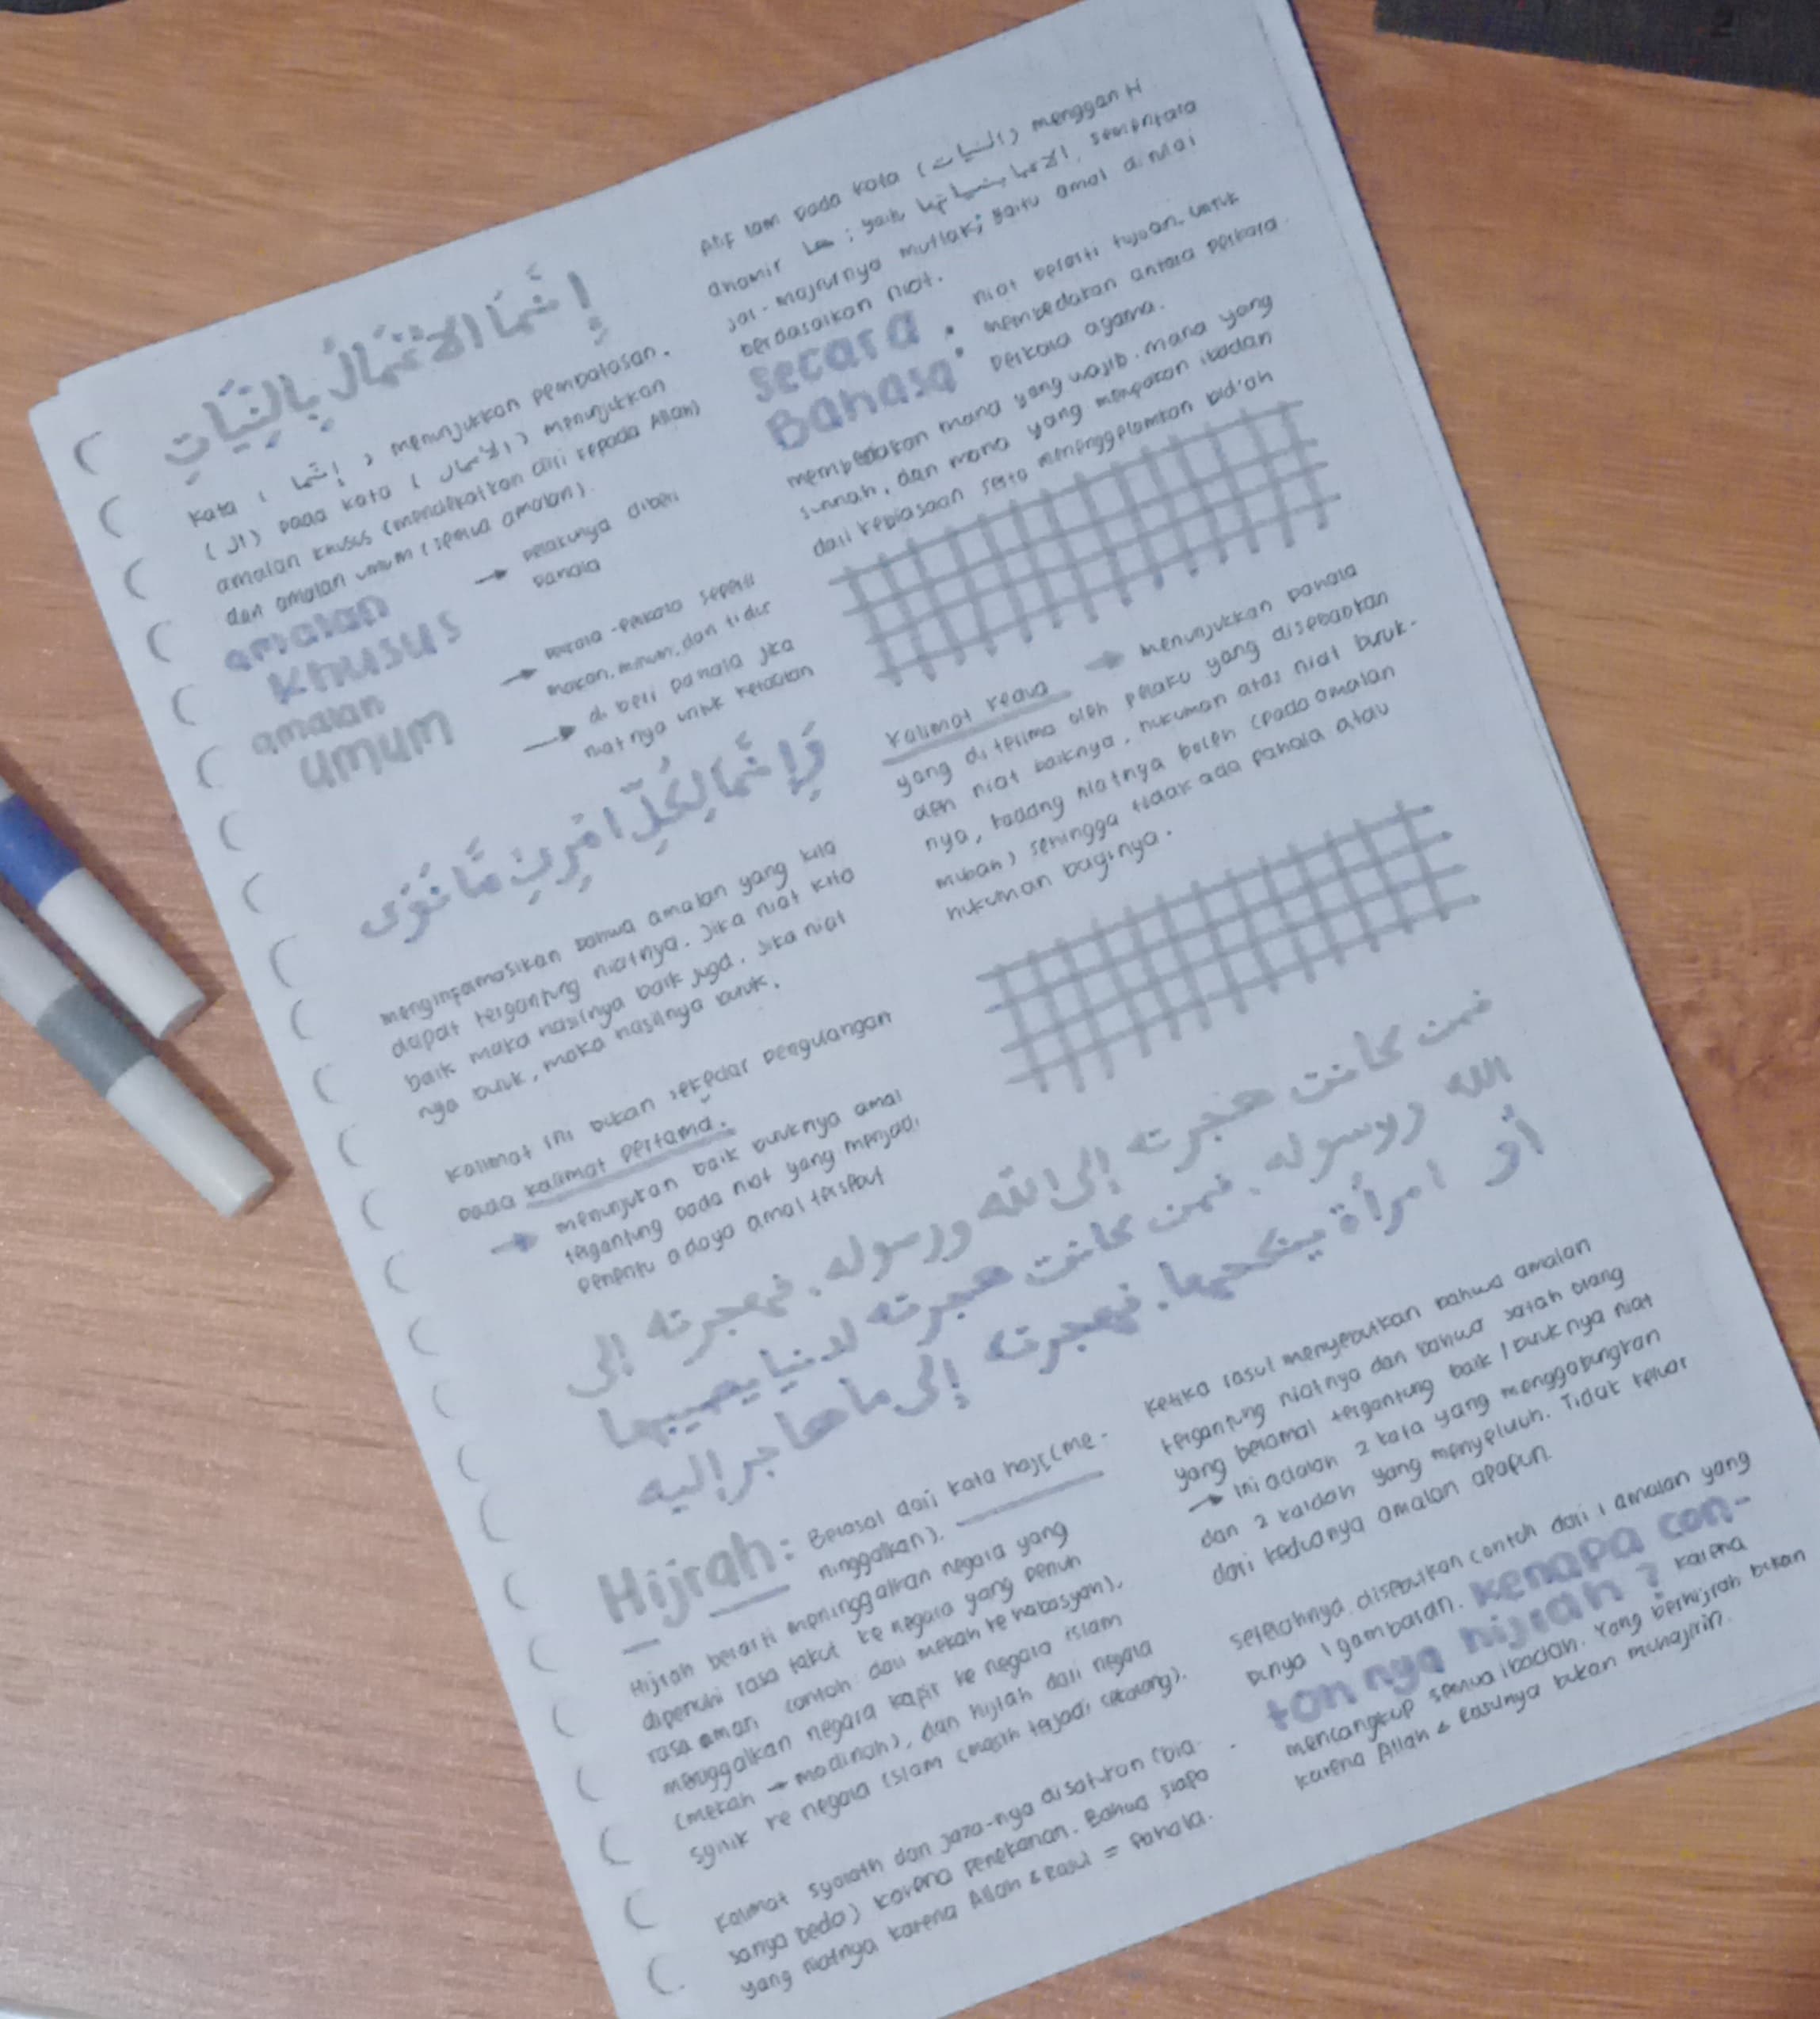 إِنَّمَا الاعْمَالُ بِالنِّيَّاتِ
Kata ( إنّما ) menunjukkan pembatasan.
(ال) pada kata ( الاعمال ) menunjukkan
amalan khusus (mendekatkan diri kepada Allah)
dan amalan umum (semua amalan).
amalan
Khusus
→ pelakunya diberi
pahala
amalan
umum
→ perkara-perkara seperti
makan, minum, dan tidur
→ di beri pahala jika
niatnya untuk ketaatan
وَإِنَّمَا لِكُلِّ امْرِئٍ مَّا نَوَى
menginformasikan bahwa amalan yang kita
dapat tergantung niatnya. Jika niat kita
baik maka hasilnya baik juga. Jika niat
nya buruk, maka hasilnya buruk.
Kalimat ini bukan sekedar pengulangan
pada kalimat pertama.
→ menunjukan baik buruknya amal
tergantung pada niat yang menjadi
penentu adaya amal tersebut
Alif lam pada kata (النيات) menggan ti
dhomir ها ; yaitu الاعمال بنياتها, sementara
jar-majrurnya mutlak; yaitu amal dinilai
berdasarkan niat.
secara
Bahasa
: niat berarti tujuan. untuk
: membedakan antara perkara
perkara agama.
membedakan mana yang wajib. mana yang
sunnah, dan mana yang merupakan ibadah
dari kebiasaan serta menenggelamkan bid'ah
Kalimat kedua → menunjukkan pahala
yang diterima oleh pelaku yang disebabkan
oleh niat baiknya, hukuman atas niat buruk-
nya, kadang niatnya boleh (pada amalan
mubah) sehingga tidak ada pahala atau
hukuman baginya.
فمن كانت هجرته إلى الله ورسوله. فهجرته إلى
الله ورسوله. فمن كانت هجرته لدنيا يصيبها
أو امرأة ينكحها. فهجرته إلى ما هاجر إليه
Hijrah: Berasal dari kata hajr (me-
ninggalkan).
Hijrah berarti meninggalkan negara yang
dipenuhi rasa takut ke negara yang penuh
rasa aman contoh: dari mekah ke habasyah),
meninggalkan negara kafir ke negara islam
(mekah → madinah), dan hijrah dari negara
syirik ke negara islam (masih terjadi sekarang).
Kalimat syarath dan jaza-nya disatukan (bia-
sanya beda) karena penekanan. Bahwa siapa
yang niatnya karena Allah & Rasul = Pahala.
Ketika rasul menyebutkan bahwa amalan
tergantung niatnya dan bahwa jatah orang
yang beramal tergantung baik / buruknya niat
→ Ini adalah 2 kata yang menggabungkan
dan 2 kaidah yang menyeluruh. Tidak keluar
dari keduanya amalan apapun.
setelahnya disebutkan contoh dari 1 amalan yang
punya 1 gambaran. Kenapa con-
tohnya hijrah ? karena
mencangkup semua ibadah. Yang berhijrah bukan
karena Allah & Rasulnya bukan muhajirin.